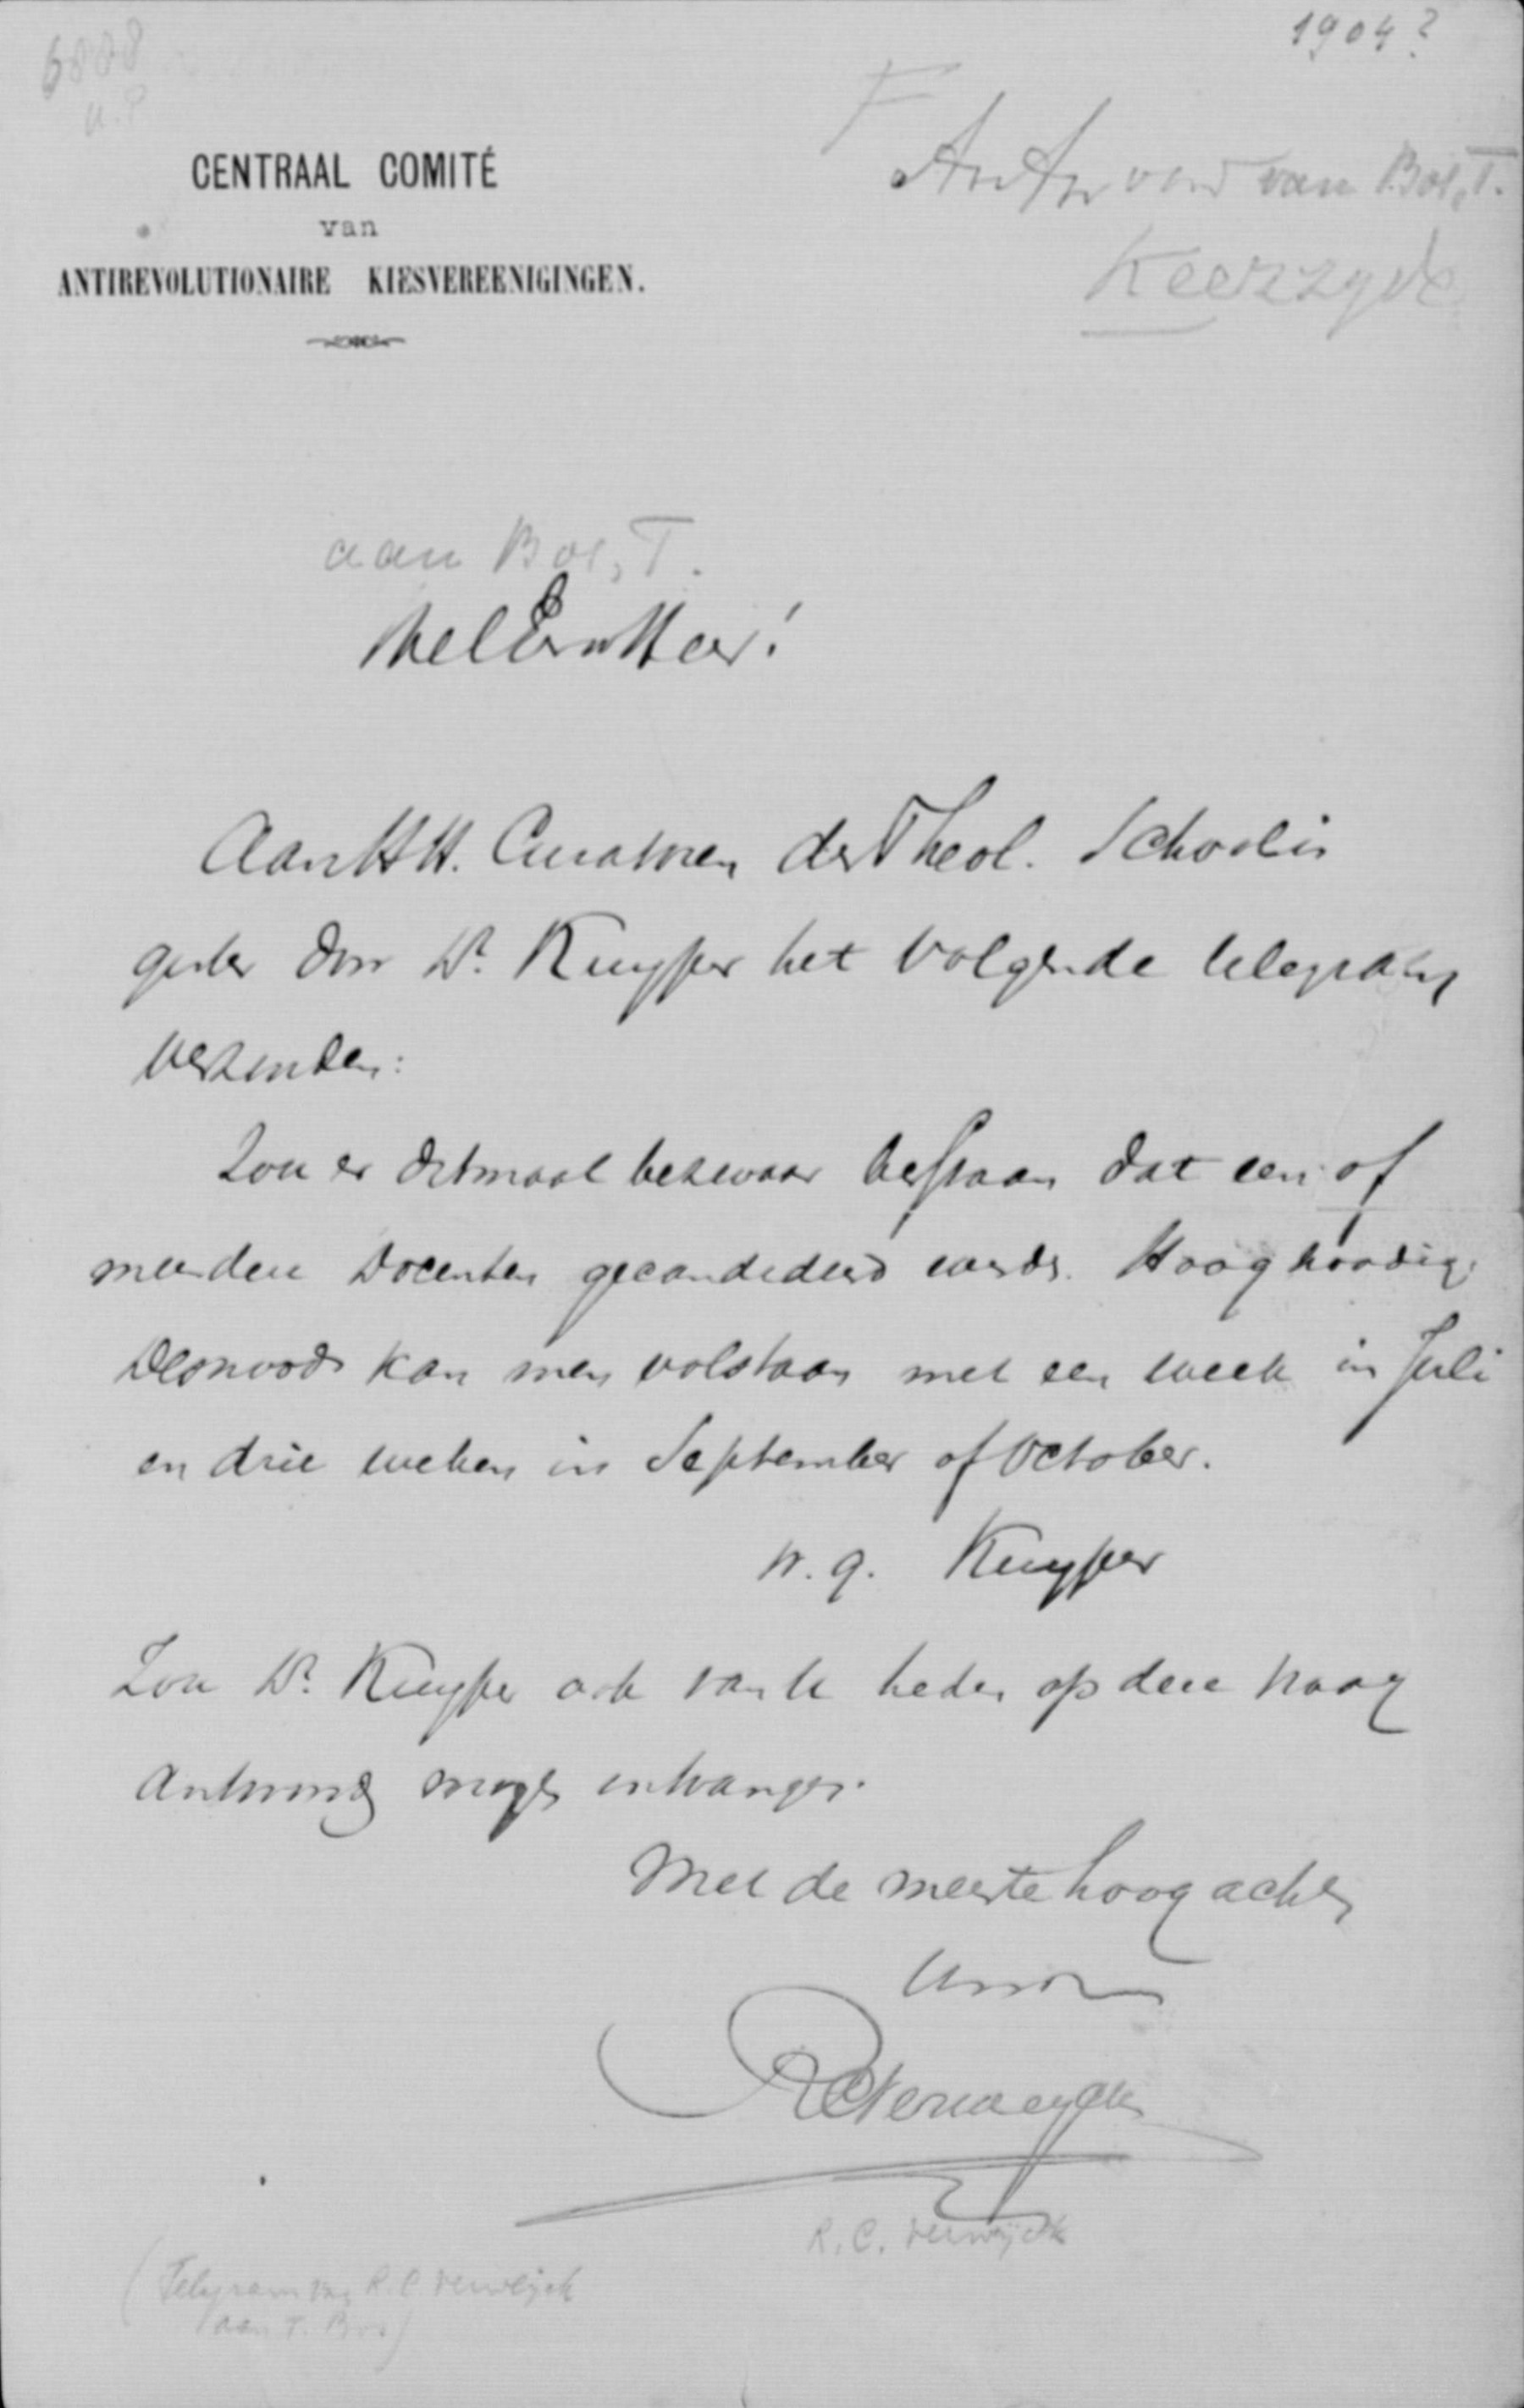 1904?
6888
CENTRAAL COMITÉ
van
ANTIREVOLUTIONAIRE KIESVEREENIGINGEN.
Antwoord van Bos, T.
Keerzyde
aan Bos, T.
WelEerw Heer!
Aan HH. Curatoren der Theol. School is
gister door Dr. Kuyper het volgende telegram
verzonden:
Zou er ditmaal bezwaar bestaan dat een of
meerdere Docenten gecandideerd werds. Hoog noodig.
Desnoods kan men volstaan met een week in Juli
en drie weken in September of October.
w. g. Kuyper
Zou Dr. Kuyper ook van U heden op deze vraag
antwoord mogen ontvangen.
Met de meeste hoogachting
RCVerweyck
R. C. Verwijck
(Telegram van R. C. Verwijck
aan T. Bos)